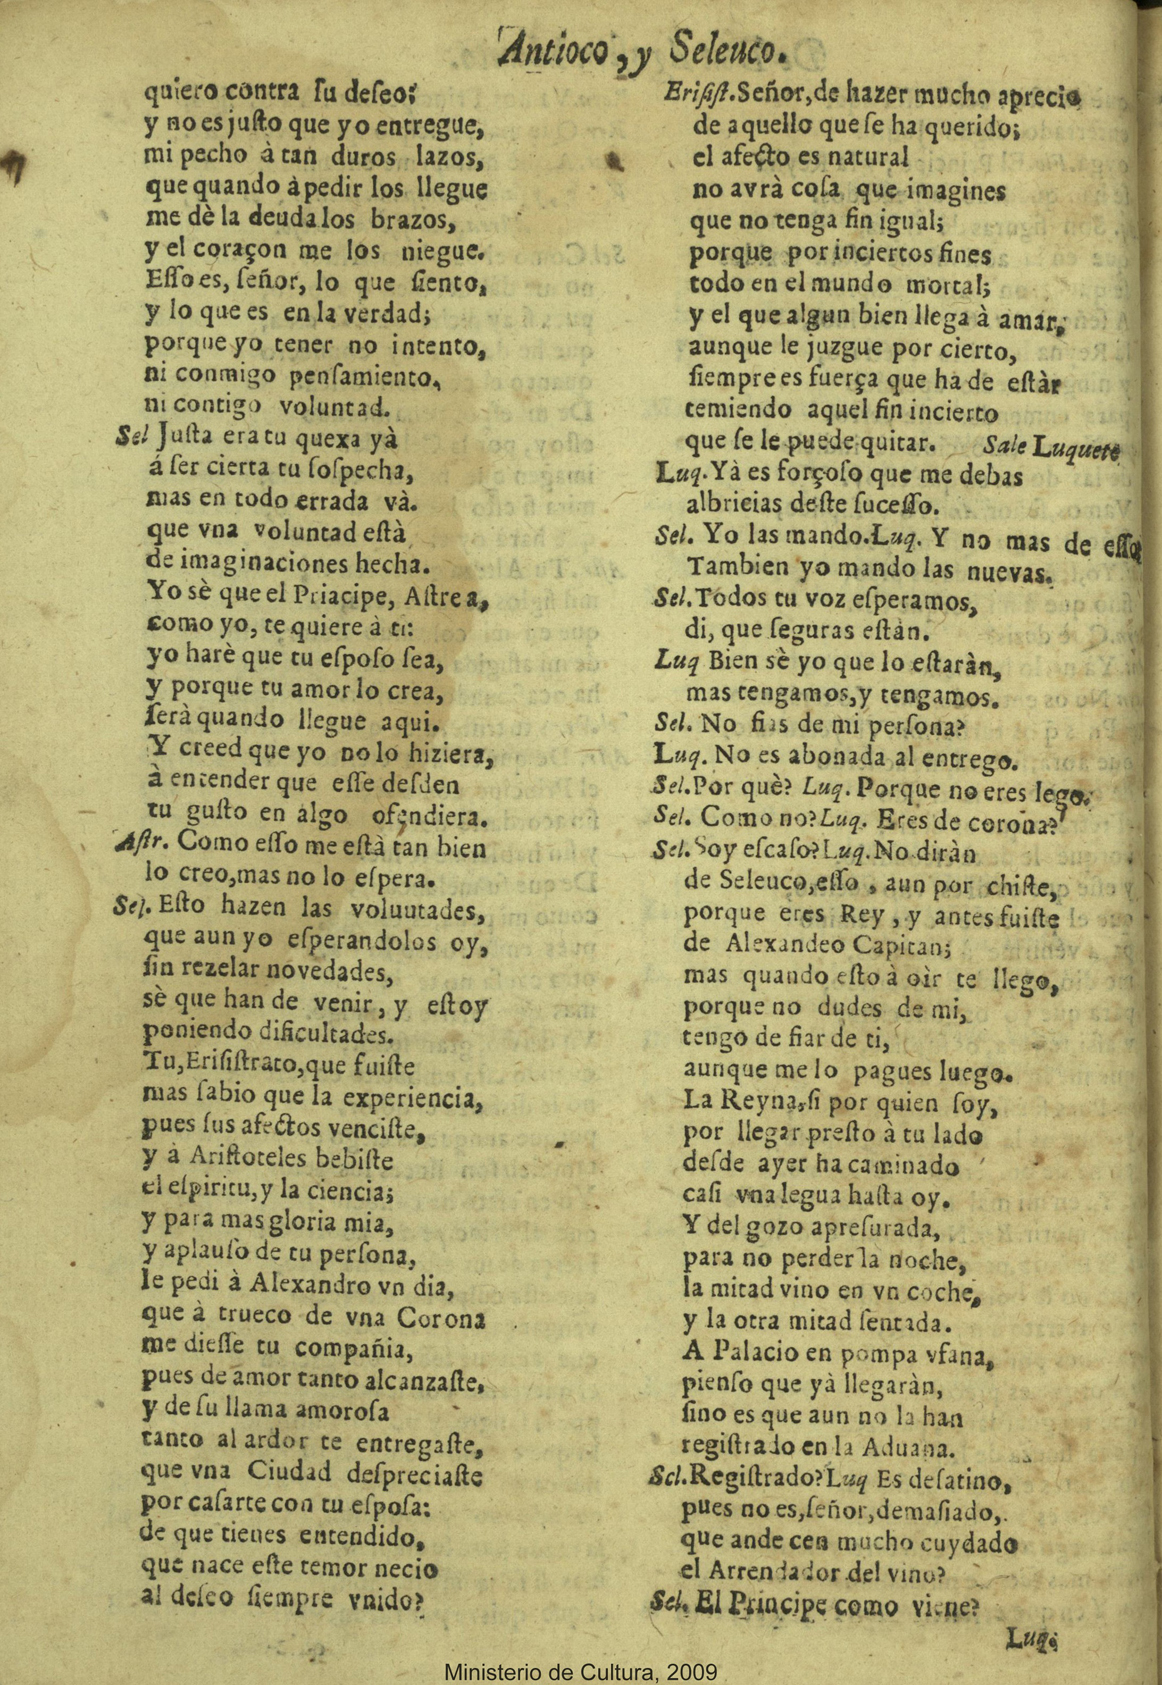 Antioco, y Seleuco.
quiero contra ſu deſeo;
y no es juſto que yo entregue,
mi pecho à tan duros lazos,
que quando à pedir los llegue
me dè la deuda los brazos,
y el coraçon me los niegue.
Eſſo es, ſeñor, lo que ſiento,
y lo que es en la verdad;
porque yo tener no intento,
ni conmigo penſamiento,
ni contigo voluntad.
Sel Juſta era tu quexa yà
á ſer cierta tu ſoſpecha,
mas en todo errada và.
que vna voluntad eſtà
de imaginaciones hecha.
Yo sè que el Priacipe, Aſtrea,
como yo, te quiere à ti:
yo harè que tu eſpoſo ſea,
y porque tu amor lo crea,
ſerà quando llegue aqui.
Y creed que yo no lo hiziera,
à entender que eſſe deſden
tu guſto en algo ofendiera.
Aſtr. Como eſſo me eſtà tan bien
lo creo, mas no lo eſpera.
Sel. Eſto hazen las voluutades,
que aun yo eſperandolos oy,
ſin rezelar novedades,
sè que han de venir, y eſtoy
poniendo dificultades.
Tu, Eriſiſtrato, que fuiſte
mas ſabio que la experiencia,
pues ſus afectos venciſte,
y à Ariſtoteles bebiſte
el eſpiritu, y la ciencia;
y para mas gloria mia,
y aplauſo de tu perſona,
le pedi à Alexandro vn dia,
que à trueco de vna Corona
me dieſſe tu compañia,
pues de amor tanto alcanzaſte,
y de ſu llama amoroſa
tanto al ardor te entregaſte,
que vna Ciudad deſpreciaſte
por caſarte con tu eſpoſa:
de que tienes entendido,
que nace eſte temor necio
al deſeo ſiempre vnido?
Eriſiſt. Señor, de hazer mucho aprecio
de aquello que ſe ha querido;
el afecto es natural
no avrà coſa que imagines
que no tenga fin igual;
porque por inciertos fines
todo en el mundo mortal;
y el que algun bien llega à amar,
aunque le juzgue por cierto,
ſiempre es fuerça que ha de eſtàr
temiendo aquel fin incierto
que ſe le puede quitar. Sale Luquete
Luq. Yà es forçoſo que me debas
albricias deſte ſuceſſo.
Sel. Yo las mando. Luq. Y no mas de eſſo
Tambien yo mando las nuevas.
Sel. Todos tu voz eſperamos,
di, que ſeguras eſtàn.
Luq Bien sè yo que lo eſtaràn,
mas tengamos, y tengamos.
Sel. No fias de mi perſona?
Luq. No es abonada al entrego.
Sel. Por què? Luq. Porque no eres lego.
Sel. Como no? Luq. Eres de corona?
Sel. Soy eſcaſo? Luq. No diràn
de Seleuco, eſſo, aun por chiſte,
porque eres Rey, y antes fuiſte
de Alexandeo Capitan;
mas quando eſto à oìr te llego,
porque no dudes de mi,
tengo de fiar de ti,
aunque me lo pagues luego.
La Reyna, ſi por quien ſoy,
por llegar preſto à tu lado
deſde ayer ha caminado
caſi vna legua haſta oy.
Y del gozo apreſurada,
para no perder la noche,
la mitad vino en vn coche,
y la otra mitad ſentada.
A Palacio en pompa vfana,
pienſo que yà llegaràn,
ſino es que aun no la han
regiſtrado en la Aduana.
Sel. Regiſtrado? Luq Es deſatino,
pues no es, ſeñor, demaſiado,
que ande cen mucho cuydado
el Arrendador del vino?
Sel. El Principe como viene?
Luq.
Ministerio de Cultura, 2009